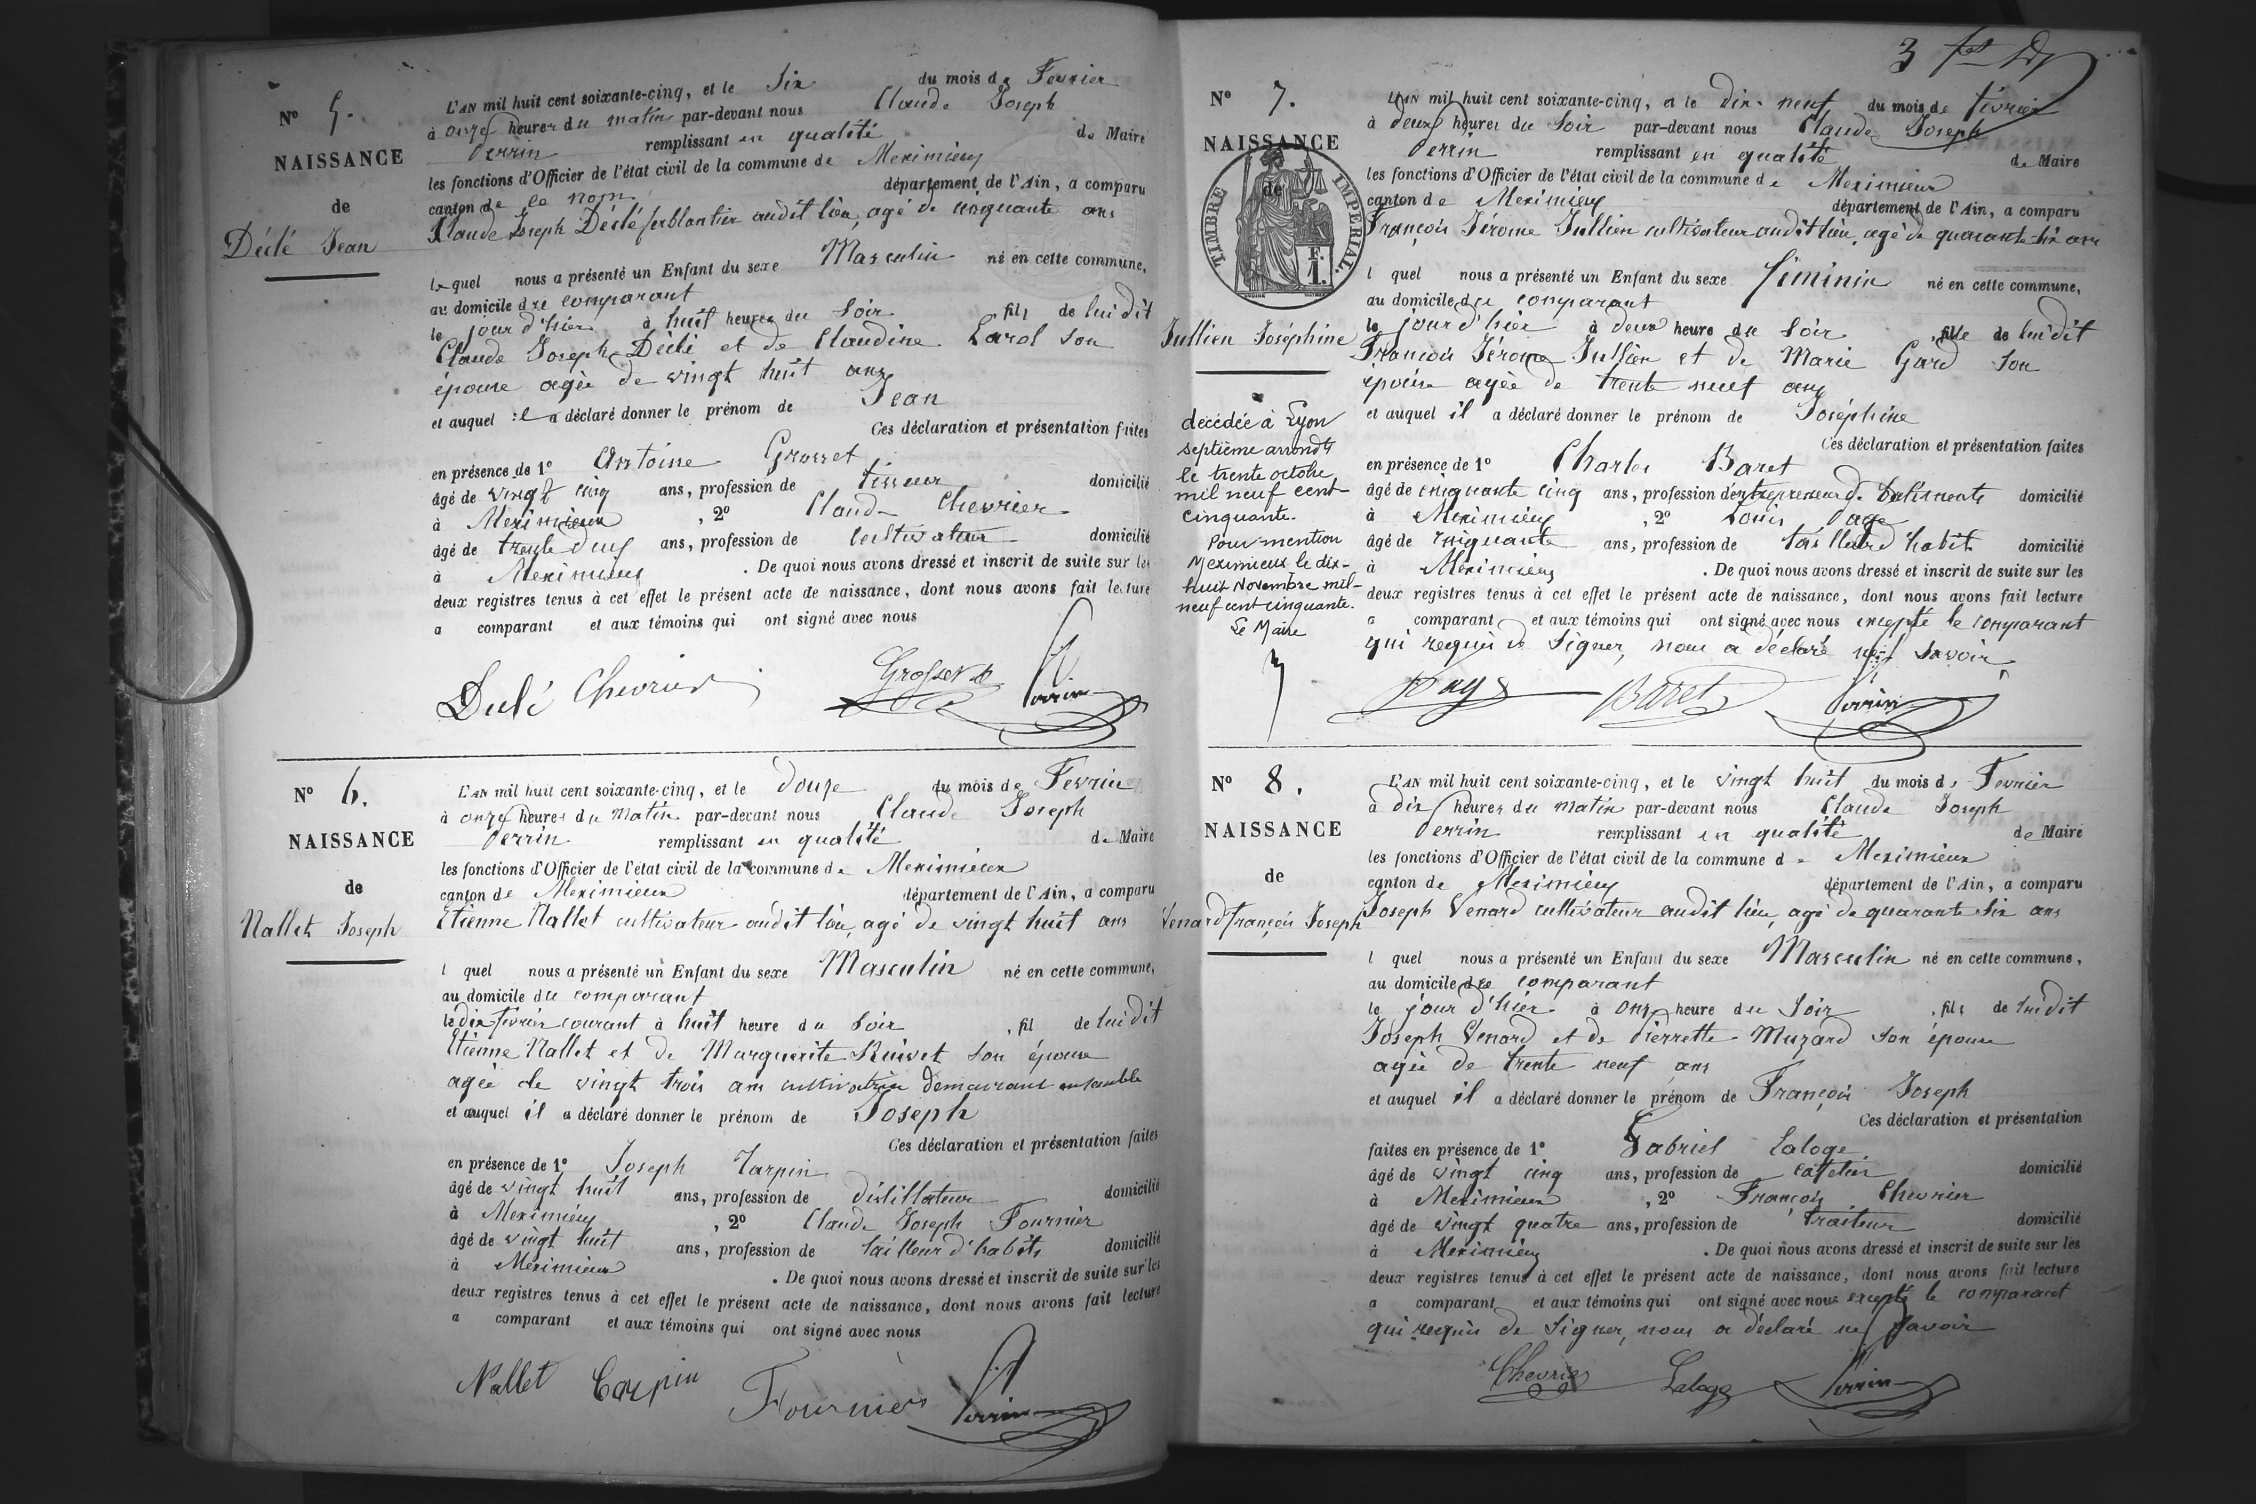 N° 5.
NAISSANCE
de
Déclé Jean
L'AN mil huit cent soixante-cinq, et le Six du mois de Fevrier
à onze heures du matin par-devant nous Claude Joseph
Perrin remplissant en qualité de Maire
les fonctions d'Officier de l'état civil de la commune de Meximieux
canton de ce nom département de l'Ain, a comparu
Claude Joseph Déclé ferblantier audit lieu, agé de cinquante ans
lequel nous a présenté un Enfant du sexe Masculin né en cette commune,
au domicile du comparant
le jour d'hier à huit heures du Soir fils de lui dit
Claude Joseph Déclé et de Claudine Carol son
épouse agée de vingt huit ans
et auquel il a déclaré donner le prénom de Jean
Ces déclaration et présentation faites
en présence de 1° Antoine Grosset
âgé de vingt cinq ans, profession de tisseur domicilié
à Meximieux , 2° Claude Chevrier
âgé de trente deux ans, profession de Cultivateur domicilié
à Meximieux . De quoi nous avons dressé et inscrit de suite sur les
deux registres tenus à cet effet le présent acte de naissance, dont nous avons fait lecture
a comparant et aux témoins qui ont signé avec nous
Declé Chevrier Grosset Perrin
N° 6.
NAISSANCE
de
Nallet Joseph
L'AN mil huit cent soixante-cinq, et le douze du mois de Fevrier
à onze heures du Matin par-devant nous Claude Joseph
Perrin remplissant en qualité de Maire
les fonctions d'Officier de l'état civil de la commune de Meximieux
canton de Meximieux département de l'Ain, a comparu
Etienne Nallet cultivateur audit lieu, agé de vingt huit ans
l quel nous a présenté un Enfant du sexe Masculin né en cette commune,
au domicile du comparant
le dix fevrier courant à huit heure du Soir , fil de lui dit
Etienne Nallet et de Marguerite Ruivet son épouse
agée de vingt trois ans cultivatrice demeurant ensemble
et auquel il a déclaré donner le prénom de Joseph
Ces déclaration et présentation faites
en présence de 1° Joseph Carpin
âgé de vingt huit ans, profession de distillateur domicilié
à Meximieux , 2° Claude Joseph Fournier
âgé de vingt huit ans, profession de tailleur d'habits domicilié
à Meximieux . De quoi nous avons dressé et inscrit de suite sur les
deux registres tenus à cet effet le présent acte de naissance, dont nous avons fait lecture
a comparant et aux témoins qui ont signé avec nous
Nallet Carpin Fournier Perrin
3
N° 7.
NAISSANCE
de
TIMBRE IMPERIAL.
F.
1.
Jullien Joséphine
décédée à Lyon
septième arrondt
le trente octobre
mil neuf cent
cinquante.
Pour mention
Meximieux le dix-
huit Novembre mil-
neuf cent cinquante.
Le Maire
L'AN mil huit cent soixante-cinq, et le dix-neuf du mois de février
à deux heures du Soir par-devant nous Claude Joseph
Perrin remplissant en qualité de Maire
les fonctions d'Officier de l'état civil de la commune de Meximieux
canton de Meximieux département de l'Ain, a comparu
François Jérome Jullien cultivateur audit lieu, agé de quarante six ans
l quel nous a présenté un Enfant du sexe féminin né en cette commune,
au domicile du comparant
le jour d'hier à deux heure du Soir , fille de lui dit
François Jérome Jullien et de Marie Gard son
épouse agée de trente neuf ans
et auquel il a déclaré donner le prénom de Joséphine
Ces déclaration et présentation faites
en présence de 1° Charles Baret
âgé de cinquante cinq ans, profession d'entrepreneur de batiments domicilié
à Meximieux , 2° Louis Page
âgé de cinquante ans, profession de tailleur d'habits domicilié
à Meximieux . De quoi nous avons dressé et inscrit de suite sur les
deux registres tenus à cet effet le présent acte de naissance, dont nous avons fait lecture
a comparant et aux témoins qui ont signé avec nous excepté le comparant
qui requis de Signer, nous a déclaré ne savoir
Page Baret Perrin
N° 8.
NAISSANCE
de
Venard François Joseph
L'AN mil huit cent soixante-cinq, et le vingt huit du mois de Fevrier
à dix heures du matin par-devant nous Claude Joseph
Perrin remplissant en qualité de Maire
les fonctions d'Officier de l'état civil de la commune de Meximieux
canton de Meximieux département de l'Ain, a comparu
Joseph Venard cultivateur audit lieu, agé de quarante six ans
l quel nous a présenté un Enfant du sexe Masculin né en cette commune,
au domicile du comparant
le jour d'hier à onze heure du Soir , fils de lui dit
Joseph Venard et de Pierrette Muzard son épouse
agée de trente neuf ans
et auquel il a déclaré donner le prénom de François Joseph
Ces déclaration et présentation
faites en présence de 1° Gabriel Laloge
âgé de vingt cinq ans, profession de domicilié
à Meximieux , 2° François Chevrier
âgé de vingt quatre ans, profession de traiteur domicilié
à Meximieux . De quoi nous avons dressé et inscrit de suite sur les
deux registres tenus à cet effet le présent acte de naissance, dont nous avons fait lecture
a comparant et aux témoins qui ont signé avec nous excepté le comparant
qui requis de Signer, nous a déclaré ne savoir
Chevrier Laloge Perrin